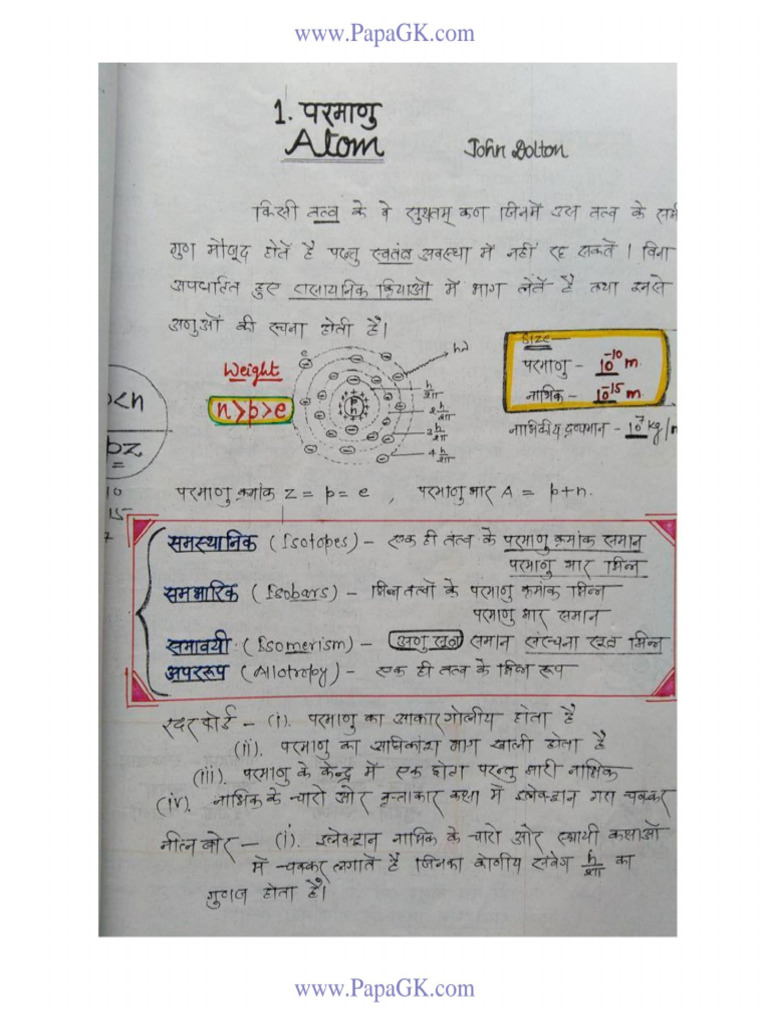 www.PapaGK.com
1. परमाणु
Atom
John Dolton
किसी तत्व के वे सुक्ष्तम् कण जिनमें उस तत्व के सभी
गुण मौजूद होतें है परन्तु स्वतंत्र अवस्था में नहीं रह सकतें । बिना
अपघटित हुए रासायनिक क्रियाओं में भाग लेतें है तथा इनसे
अणुओं की रचना होती है।
Weight
n>p>e
hν
h/2π
2h/2π
3h/2π
4h/2π
Size
परमाणु - 10⁻¹⁰ m.
नाभिक - 10⁻¹⁵ m.
नाभिकीय द्रव्यमान - 10⁷ kg/m
p<n
परमाणु क्रमांक Z = p = e , परमाणु भार A = p+n.
समस्थानिक (Isotopes) – एक ही तत्व के परमाणु क्रमांक समान
परमाणु भार भिन्न
समभारिक (Isobars) – भिन्न तत्वों के परमाणु क्रमांक भिन्न
परमाणु भार समान
समावयी (Isomerism) – अणु सूत्र समान संरचना सूत्र भिन्न
अपररूप (Allotropy) – एक ही तत्व के भिन्न रूप
रदरफोर्ड – (i). परमाणु का आकार गोलीय होता है
(ii). परमाणु का अधिकांश भाग खाली होता है
(iii). परमाणु के केन्द्र में एक छोटा परन्तु भारी नाभिक
(iv). नाभिक के चारो ओर वृत्ताकार कक्षा में इलेक्ट्रान द्वारा चक्कर
नील बोर – (i). इलेक्ट्रान नाभिक के चारो ओर स्थायी कक्षाओं
में चक्कर लगाते है जिनका कोणीय संवेग h/2π का
गुणज होता है।
www.PapaGK.com